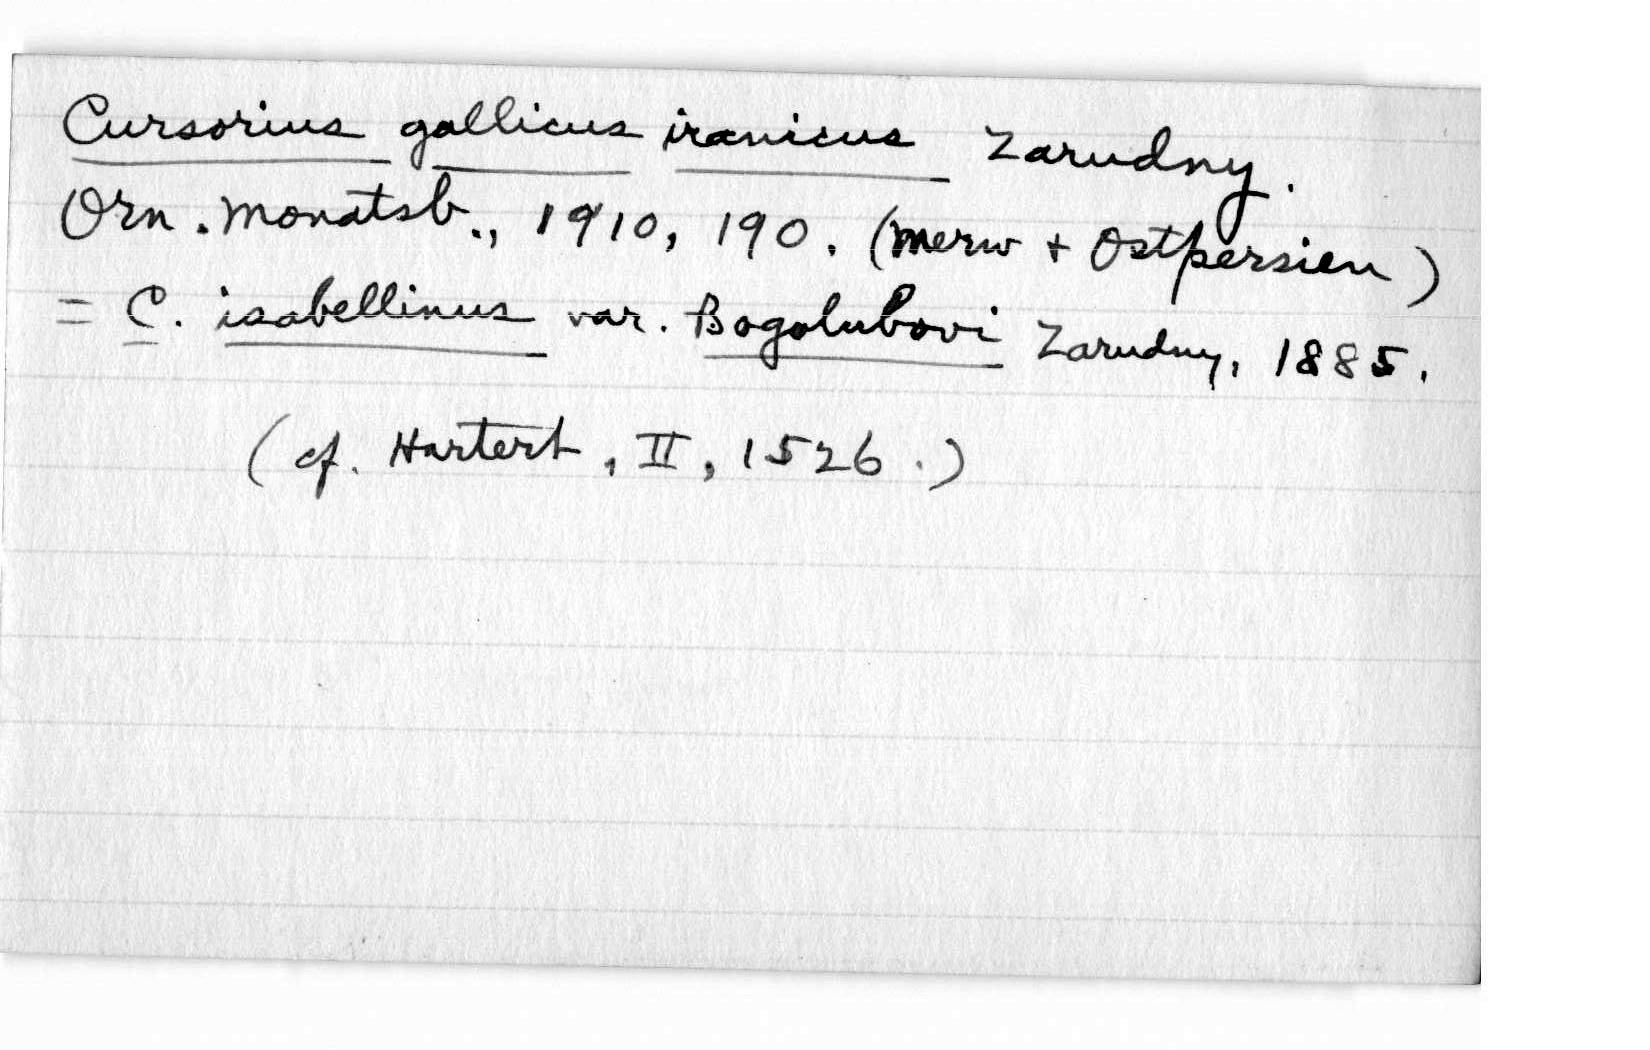 Cursorius gallicus iranicus Zarudny.
Orn. Monatsb., 1910, 190. (Merw + Ostpersien)
= C. isabellinus var. Bogolubovi Zarudny, 1885.
(cf. Hartert, II, 1526.)